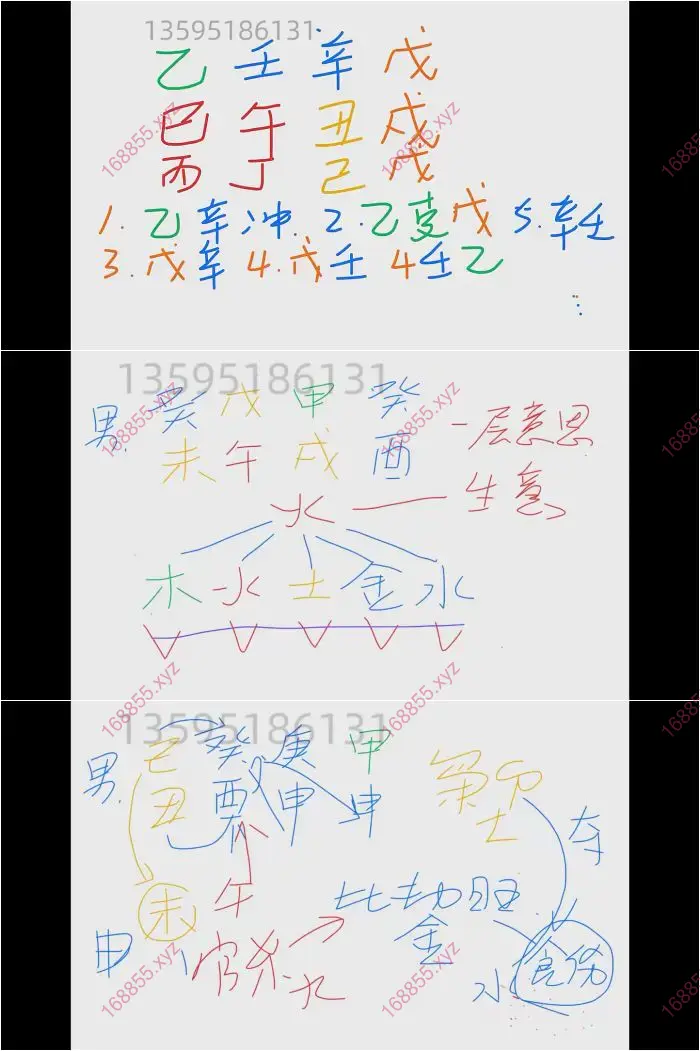 13595186131
乙 壬 辛 戊
168855.xyz
巳 午 丑 戌
丙 丁 己 戊
1. 乙辛冲. 2. 乙克戊 5. 辛壬
3. 戊辛 4. 戊壬 4 壬乙
13595186131
男. 癸 戊 甲 癸
168855.xyz
未 午 戌 酉
一层意思
火 生意
木 火 土 金 水
168855.xyz
13595186131
男. 己 癸 庚 甲
丑 酉 申 申
印
土
夺
未 午
比劫旺
金
申 官杀.火
水 食伤
168855.xyz